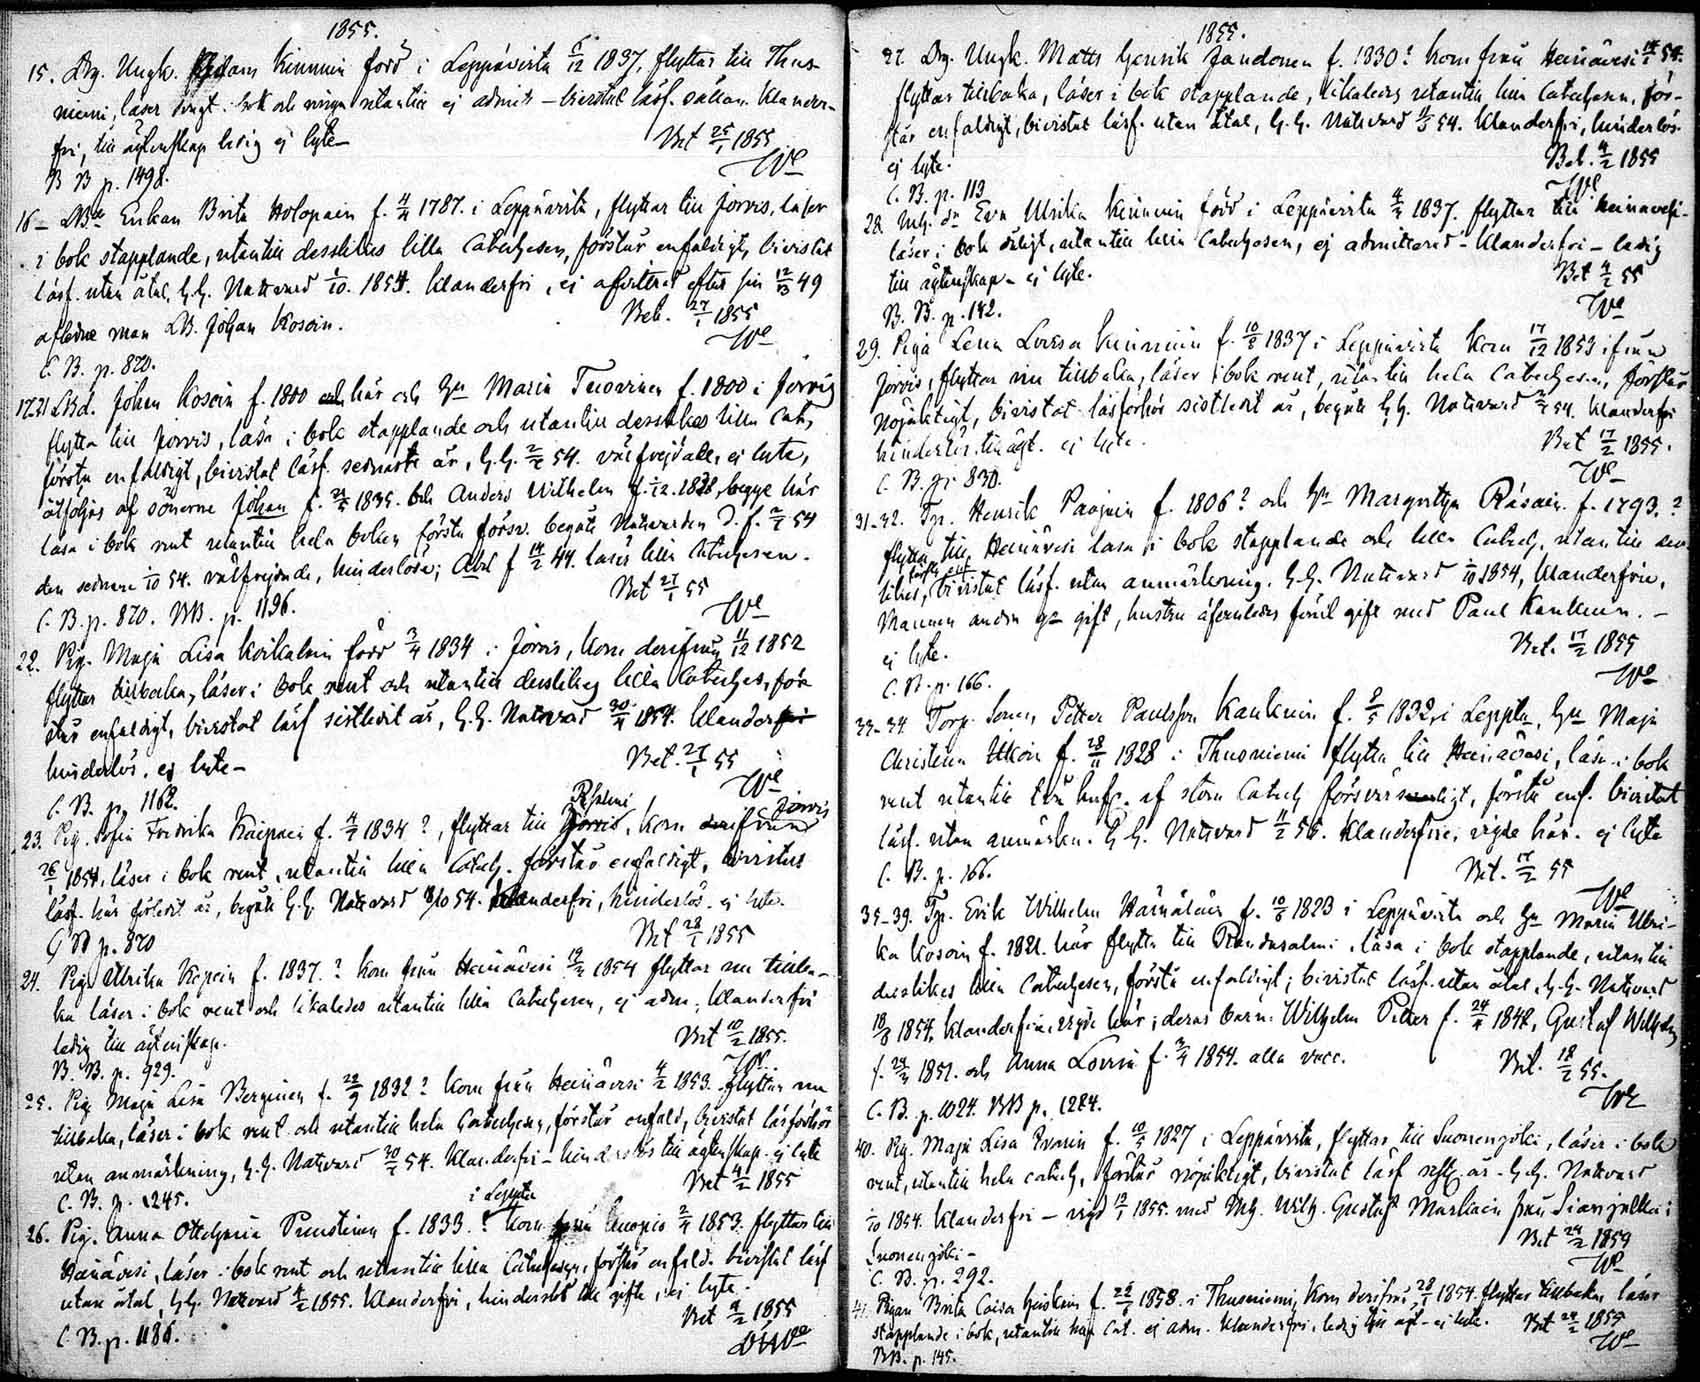 1855.
15. Drg. Ungk. Adam Kinnunen född i Leppävirta 5/12 1837, flyttar till Thus-
niemi, läser svagt i bok och ringa utantill ej admitt. - bivistat läsf. sällan. Klander-
fri, till äktenskap ledig ej lyte -
Bet 25/1 1855
We
B B p. 1498.
16 - Enkan Brita Holopain f. 4/4 1787. i Leppävirta, flyttar till Jorois, läser
i bok stapplande, utantill desslikes lilla Catechesen, förstår enfaldigt, bivistat
läsf. utan åtal, H.H. Nattvard 1/10. 1854. Klanderfri, ej afvittrad efter sin 12/3 49
aflidne man Johan Kosoin.
Bet. 27/1 1855
We
C. B. p. 870.
17-21 Johan Kosoin f. 1800 här och Hu Maria Tuovinen f. 1800 i Jorois
flytta till Jorois, läsa i bok stapplande och utantill desslikes lilla Cat.,
förstå enfaldigt, bivistat läsf. sednaste år, H.H. 2/2 54. välfrejdade, ej lyte,
åtföljas af sönerne Johan f. 1835. och Anders Wilhelm f. /12. 1838, begge här
läsa i bok rent utantill hela boken förstå försv. begått Nattvarden d. f. 2/2 54
den sednare 1/10 54. välfrejdade, hinderlösa; Abel f 14/2 44. läser lilla Catechesen.
Bet 27/1 55
We
C. B. p. 870. BB. p. 1196.
22. Pig. Maja Lisa Koikalain född 3/4 1834 i Jorois, kom derifrån 11/12 1852
flyttar tillbaka, läser i bok rent och utantill desslikes lilla Cateches, för-
står enfaldigt, bivistat läsf sistledit år, H.H. Nattvard 30/4 1854. Klanderfri
hinderlös. ej lyte -
Bet. 27/1 55
We
C. B. p. 1162.
23. Pig. Sofia Fredrika f. 4/4 1834?, flyttar till Jorois, kom derifrån Jorois
26/1 1854, läser i bok rent, utantill lilla Catech. förstår enfaldigt, bivistat
läsf. här förledit år, begått H.H. Nattvard 8/10 54. Klanderfri, hinderlös. ej lyte.
Bet 28/1 1855
C B p. 870
24. Pig. Ulrika f. 1837.? kom från Heinävesi 1854 flyttar nu tillba-
ka läser i bok rent och likaledes utantill lilla Catechesen, ej adm. Klanderfri
ledig till äktenskap.
Bet 10/2 1855.
We
B. B. p. 929.
25. Pig Maja Lisa Berginen f. 22/9 1832? kom från Heinävesi 4/2 1853. flyttar nu
tillbaka, läser i bok rent och utantill hela Catechesen, förstår enfald, bivistat läsförhör
utan anmärkning, H.H. Nattvard 54. Klanderfri - hinderlös till äktenskap - ej lyte
Bet 4/2 1855
C. B. p. 245.
i Leppvta
26. Pig. Anna f. 1833.? kom från Kuopio 2/4 1853. flyttar till
Heinävesi, läser i bok rent och utantill lilla Catechesen, förstår enfald. bivistat läsf
utan åtal, H.H. Nattvard 4/2 1855. Klanderfri, hinderlöst till gifte, ej lyte.
Bet 4/2 1855
C. B. p. 1186.
1855.
27. Drg. Ungk. Matts Henrik Jandonen f. 1830? kom från Heinävesi 54.
flyttar tillbaka, läser i bok stapplande, likaledes utantill lilla Catechesen, för-
står enfaldigt, bivistat läsf. utan åtal, H.H. Nattvard 54. Klanderfri, hinderlös.
ej lyte.
Bet. 4/2 1855
We
C. B. p. 113
28. Eva Ulrika Kinnunen född i Leppävirta 4/3 1837. flyttar till Heinävesi -
läser i bok dåligt, utantill lilla Catechesen, ej admitterad - Klanderfri - ledig
till äktenskap - ej lyte.
Bet 4/2 55
We
B. B. p. 142.
29. Piga Lena Lovisa Kinnunen f. 10/8 1837 i Leppävirta kom 17/12 1853 ifrån
Jorois, flyttar nu tillbaka, läser i bok rent, utantill hela Catechesen, förstår
nöjaktigt, bivistat läsförhör sistledit år, begått H.H. Nattvard 54. Klanderfri
hinderlös till ägt. ej lyte.
Bet 17/2 1855.
We
C. B. p. 830.
31-32. Tp. Henrik f. 1806? och Hu Margretha Räsäin. f. 1793.?
flytta till Heinävesi läsa i bok stapplande och lilla Catech. utantill dess-
förstå enf.
likes, bivistat läsf. utan anmärkning. H.H. Nattvard 1/10 1854, Klanderfria,
Mannen andra gn gift, hustrun äfvenledes förut gift med Paul Kankunen. -
ej lyte.
Bet. 17/2 1855
We
C. B. p. 166.
33-34 Torp. Sonen, Petter Paulsson Kankunen f. 2/5 1832, i Leppvta, Hu Maja
Christina Ukkoin f. 28/11 1828 i Thusniemi flytta till Heinävesi, läsa i bok
rent utantill två hufs. af stora Catech försvarligt, förstå enf. bivistat
läsf. utan anmärkn. H.H. Nattvard 11/2 55. Klanderfria, vigde här. ej lyte
Bet. 17/2 55
We
C. B. p. 166.
35-39. Tp. Erik Wilhelm Hämäläin f. 10/6 1823 i Leppävirta och Hu Maria Ulri-
ka Kosoin f. 1821. här flytta till Randasalmi, läsa i bok stapplande, utantill
desslikes lilla Catechesen, förstå enfaldigt; bivistat läsf. utan åtal, H.H. Nattvard
1854. Klanderfria, vigde här; deras barn: Wilhelm Petter f. 24/4 1848, Gustaf Wilhelm
f. 1851. och Anna Lovisa f. 3/4 1854. alla vacc.
Bet. 18/2 55.
We
C. B. p. 1024. BB p. 1284.
40. Pig. Maja Lisa f. 10/5 1827 i Leppävirta, flyttar till Suonenjoki, läser i bok
rent, utantill hela catech, förstår nöjaktigt, bivistat läsf sistl. år - H.H. Nattvard
1/10 1854. Klanderfri - vigd 1855. med Wilh. Gustaf från i
Suonenjoki -
Bet 24/2 1855
We
C. B. p. 292.
41. Pigan Brita Caisa f. 1838 i Thusniemi, kom derifrån 28/1 1854. flyttar tillbaka läser
stapplande i bok, utantill Cat. ej adm. Klanderfri, ledig till ägt - ej lyte.
Bet 24/2 1855
We
BB. p. 145.